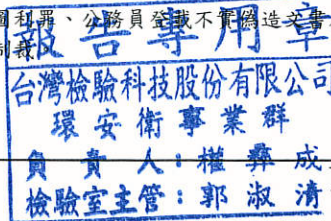 圖利罪、公務員登載不實偽造文書
制裁。
報告專用章
台灣檢驗科技股份有限公司
環安衛事業群
負責人：楊彝成
檢驗室主管：郭淑清